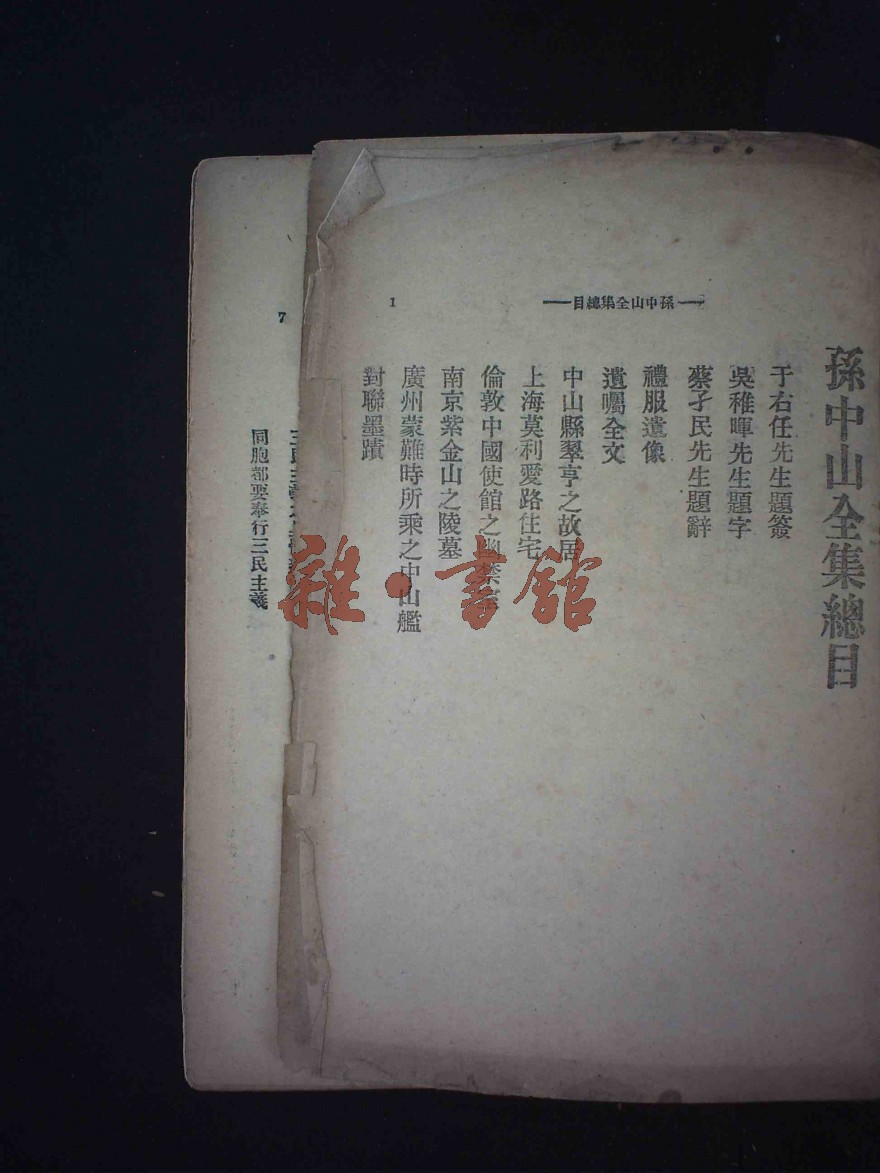 孫中山全集總目
于右任先生題簽
吳稚暉先生題字
蔡孑民先生題辭
禮服遺像
遺囑全文
中山縣翠亨之故居
上海莫利愛路住宅
倫敦中國使館之幽禁室
南京紫金山之陵墓
廣州蒙難時所乘之中山艦
對聯墨蹟
孫中山全集總目
1
7
同胞都要奉行三民主義
雜·書館